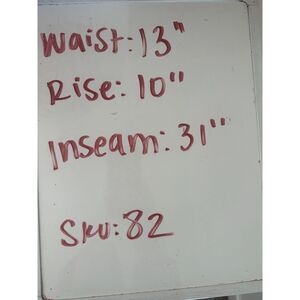 Waist: 13"
Rise: 10"
Inseam: 31"
Sku: 82